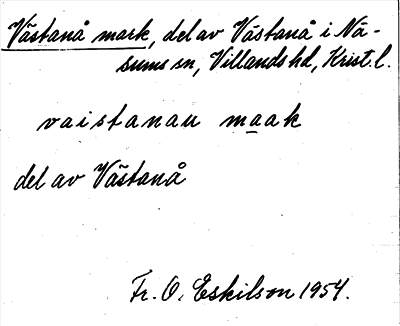 Västanå mark, del av Västanå i Nä-
sums sn, Villands hd, Krist. l.
vaistanau maak
del av Västanå
Fr. O. Eskilson 1954.